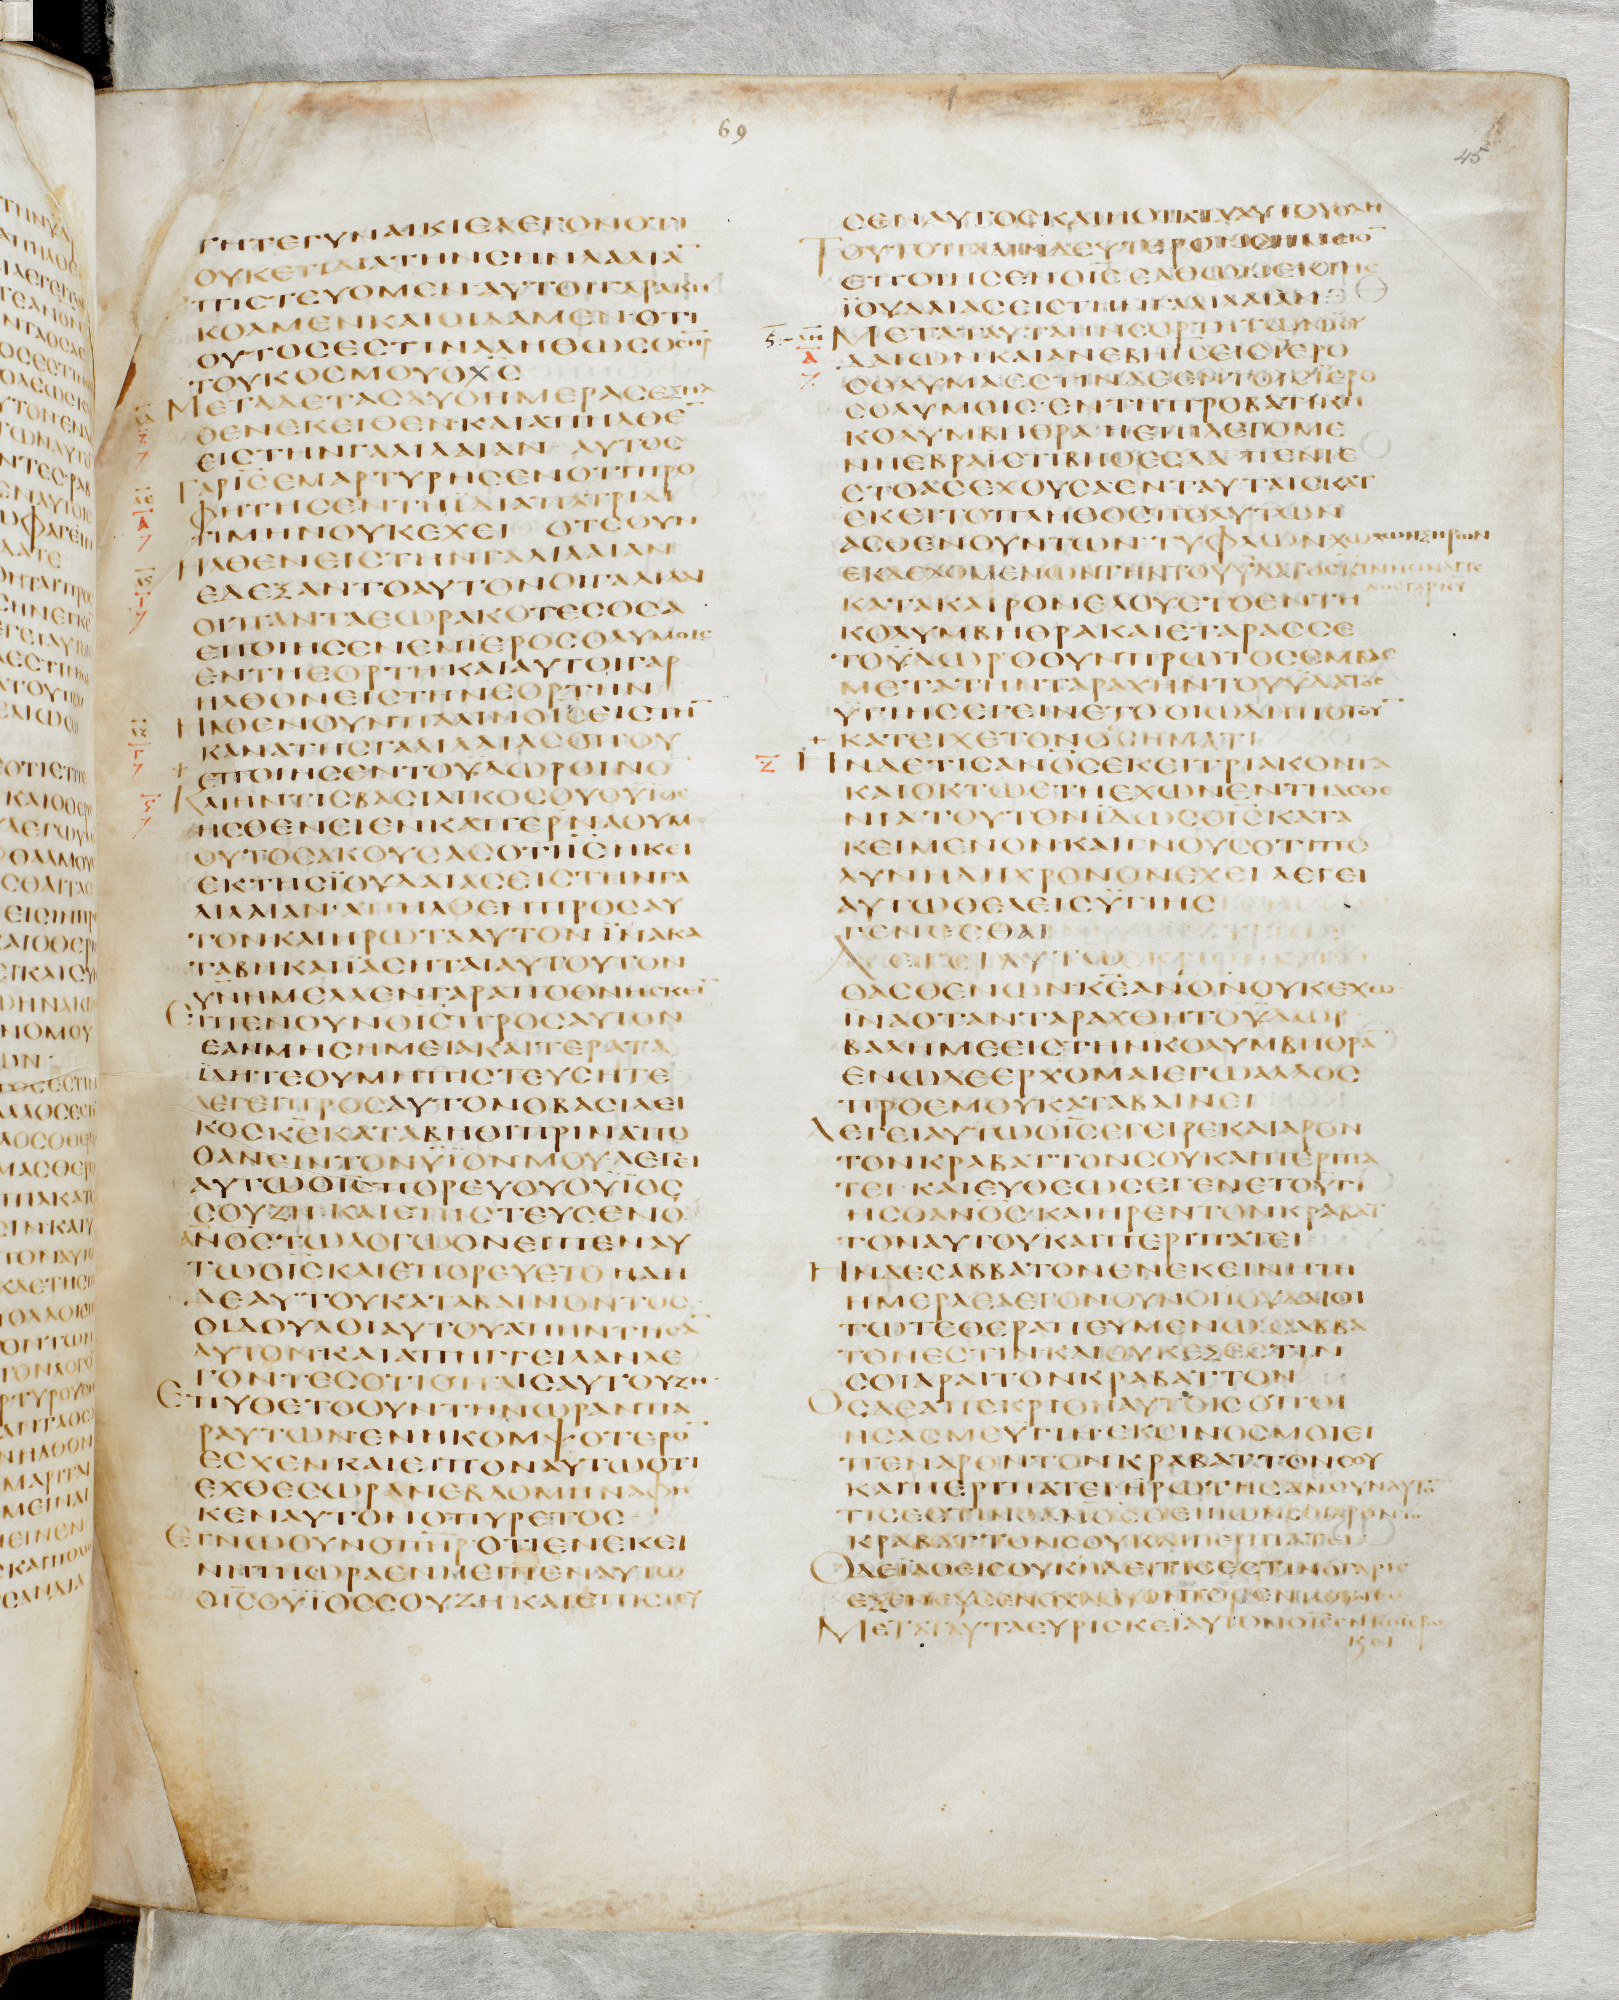 69
45
ΓΗΤΕΓΥΝΑΙΚΙΕΛΕΓΟΝΟΤΙ
ΟΥΚΕΤΙΔΙΑΤΗΝΣΗΝΛΑΛΙΑ̅
ΠΙΣΤΕΥΟΜΕΝΑΥΤΟΙΓΑΡΑΚΗ
ΚΟΑΜΕΝΚΑΙΟΙΔΑΜΕΝ·ΟΤΙ
ΟΥΤΟΣΕΣΤΙΝΑΛΗΘΩΣΟΣΗΡ
ΤΟΥΚΟΣΜΟΥΟΧΣ
ΜΕΤΑΔΕΤΑΣΔΥΟΗΜΕΡΑΣΕΞΗΛ
ΘΕΝΕΚΕΙΘΕΝ·ΚΑΙΑΠΗΛΘΕ̅
ΕΙΣΤΗΝΓΑΛΙΛΑΙΑΝ ΑΥΤΟΣ
ΓΑΡΙΣΕΜΑΡΤΥΡΗΣΕΝΟΤΙΠΡΟ
ΦΗΤΗΣΕΝΤΗΪΔΙΑΠΑΤΡΙΔΙ
ΤΙΜΗΝΟΥΚΕΧΕΙ ΟΤΕΟΥΝ
ΗΛΘΕΝΕΙΣΤΗΝΓΑΛΙΛΑΙΑΝ
ΕΔΕΞΑΝΤΟΑΥΤΟΝΟΙΓΑΛΙΛΑΙ
ΟΙΠΑΝΤΑΕΩΡΑΚΟΤΕΣΟΣΑ
ΕΠΟΙΗΣΕΝΕΝΪΕΡΟΣΟΛΥΜΟΙΣ
ΕΝΤΗΕΟΡΤΗ·ΚΑΙΑΥΤΟΙΓΑΡ
ΗΛΘΟΝΕΙΣΤΗΝΕΟΡΤΗΝ
ΗΛΘΕΝΟΥΝΠΑΛΙΝΟΙΣΕΙΣΤΗ̅
ΚΑΝΑΤΗΣΓΑΛΙΛΑΙΑΣΟΠΟΥ
ΕΠΟΙΗΣΕΝΤΟΥΔΩΡΟΙΝΟ̅
ΚΑΙΗΝΤΙΣΒΑΣΙΛΙΚΟΣΟΥΟΥΪΟΣ
ΗΣΘΕΝΕΙΕΝΚΑΠΕΡΝΑΟΥΜ
ΟΥΤΟΣΑΚΟΥΣΑΣΟΤΙΙΣΗΚΕΙ
ΕΚΤΗΣΪΟΥΔΑΙΑΣΕΙΣΤΗΝΓΑ
ΛΙΛΑΙΑΝ·ΑΠΗΛΘΕΝΠΡΟΣΑΥ
ΤΟΝΚΑΙΗΡΩΤΑΑΥΤΟΝΪΝΑΚΑ
ΤΑΒΗΚΑΙΪΑΣΗΤΑΙΑΥΤΟΥΤΟΝ
ΥΝΗΜΕΛΛΕΝΓΑΡΑΠΟΘΝΗΣΚΕΙ̅
ΕΙΠΕΝΟΥΝΟΙΣΠΡΟΣΑΥΤΟΝ
ΕΑΝΜΗΣΗΜΕΙΑΚΑΙΤΕΡΑΤΑ
ΪΔΗΤΕΟΥΜΗΠΙΣΤΕΥΣΗΤΕ
ΛΕΓΕΙΠΡΟΣΑΥΤΟΝΟΒΑΣΙΛΕΙ
ΚΟΣΚΕΚΑΤΑΒΗΘΙΠΡΙΝΑΠΟ
ΘΑΝΕΙΝΤΟΝΥΪΟΝΜΟΥΛΕΓΕΙ
ΑΥΤΩΟΙΣΠΟΡΕΥΟΥΟΥΪΟΣ
ΣΟΥΖΗ·ΚΑΙΕΠΙΣΤΕΥΣΕΝΟ
ΑΝΟΣΤΩΛΟΓΩΟΝΕΙΠΕΝΑΥ
ΤΩΟΙΣΚΑΙΕΠΟΡΕΥΕΤΟ ΗΔΗ
ΔΕΑΥΤΟΥΚΑΤΑΒΑΙΝΟΝΤΟΣ
ΟΙΔΟΥΛΟΙΑΥΤΟΥΑΠΗΝΤΗΣΑ̅
ΑΥΤΟΝ·ΚΑΙΑΠΗΓΓΕΙΛΑΝΛΕ
ΓΟΝΤΕΣΟΤΙΟΠΑΙΣΑΥΤΟΥΖΗ·
ΕΠΥΘΕΤΟΟΥΝΤΗΝΩΡΑΝΠΑ
ΡΑΥΤΩΝ·ΕΝΗΚΟΜΨΟΤΕΡΟ̅
ΕΣΧΕΝΚΑΙΕΙΠΟΝΑΥΤΩΟΤΙ
ΕΧΘΕΣΩΡΑΝΕΒΔΟΜΗΝΑΦΗ
ΚΕΝΑΥΤΟΝΟΠΥΡΕΤΟΣ
ΕΓΝΩΟΥΝΟΠΗΡ·ΟΤΙΕΝΕΚΕΙ
ΝΗΤΗΩΡΑΕΝΗΕΙΠΕΝΑΥΤΩ
ΟΙΣΟΥΪΟΣΣΟΥΖΗ·ΚΑΙΕΠΙΣΤΕΥ
ΣΕΝΑΥΤΟΣΚΑΙΗΟΙΚΙΑΑΥΤΟΥΟΛΗ
ΤΟΥΤΟΠΑΛΙΝΔΕΥΤΕΡΟΝΣΗΜΕΙΟ̅
ΕΠΟΙΗΣΕΝΟΙΣΕΛΘΩΝΕΚΤΗΣ
ΪΟΥΔΑΙΑΣΕΙΣΤΗΝΓΑΛΙΛΑΙΑΝ
ΜΕΤΑΤΑΥΤΑΗΝΕΟΡΤΗΤΩΝΪΟΥ
ΔΑΙΩΝΚΑΙΑΝΕΒΗΙΣΕΙΣΪΕΡΟ
ΣΟΛΥΜΑΕΣΤΙΝΔΕΕΝΤΟΙΣΪΕΡΟ
ΣΟΛΥΜΟΙΣ·ΕΝΤΗΠΡΟΒΑΤΙΚΗ
ΚΟΛΥΜΒΗΘΡΑ·ΗΕΠΙΛΕΓΟΜΕ
ΝΗΕΒΡΑΪΣΤΙΒΗΘΕΣΔΑ ΠΕΝΤΕ
ΣΤΟΑΣΕΧΟΥΣΑΕΝΤΑΥΤΑΙΣΚΑΤ
ΕΚΕΙΤΟΠΛΗΘΟΣΠΟΛΥΤΩΝ
ΑΣΘΕΝΟΥΝΤΩΝ·ΤΥΦΛΩΝΧΩΛΩΝΞΗΡΩΝ
ΕΚΔΕΧΟΜΕΝΩΝΤΗΝΤΟΥΥΔΑΤΟΣΚΙΝΗΣΙΝΑΓΓΕ
ΛΟΣΓΑΡΚΥ
ΚΑΤΑΚΑΙΡΟΝΕΛΟΥΕΤΟΕΝΤΗ
ΚΟΛΥΜΒΗΘΡΑΚΑΙΕΤΑΡΑΣΣΕ
ΤΟΥΔΩΡ·ΟΟΥΝΠΡΩΤΟΣΕΜΒΑΣ
ΜΕΤΑΤΗΝΤΑΡΑΧΗΝΤΟΥΥΔΑΤΟΣ
ΥΓΙΗΣΕΓΕΙΝΕΤΟ·ΟΙΩΔΗΠΟΤΟΥ̅
ΚΑΤΕΙΧΕΤΟΝΟΣΗΜΑΤΙ
ΗΝΔΕΤΙΣΑΝΟΣΕΚΕΙΤΡΙΑΚΟΝΤΑ
ΚΑΙΟΚΤΩΕΤΗΕΧΩΝΕΝΤΗΑΣΘΕ
ΝΙΑΤΟΥΤΟΝΪΔΩΣΟΙΣΚΑΤΑ
ΚΕΙΜΕΝΟΝΚΑΙΓΝΟΥΣΟΤΙΠΟ
ΛΥΝΗΔΗΧΡΟΝΟΝΕΧΕΙΛΕΓΕΙ
ΑΥΤΩΘΕΛΕΙΣΥΓΙΗΣ
ΓΕΝΕΣΘΑΙ
ΛΕΓΕΙΑΥΤΩ
ΟΑΣΘΕΝΩΝ·ΚΕΑΝΟΝΟΥΚΕΧΩ
ΪΝΑΟΤΑΝΤΑΡΑΧΘΗΤΟΥΔΩΡ
ΒΑΛΗΜΕΕΙΣΤΗΝΚΟΛΥΜΒΗΘΡΑ̅
ΕΝΩΔΕΕΡΧΟΜΑΙΕΓΩΑΛΛΟΣ
ΠΡΟΕΜΟΥΚΑΤΑΒΑΙΝΕΙ
ΛΕΓΕΙΑΥΤΩΟΙΣΕΓΕΙΡΕΚΑΙΑΡΟΝ
ΤΟΝΚΡΑΒΑΤΤΟΝΣΟΥΚΑΙΠΕΡΙΠΑ
ΤΕΙ·ΚΑΙΕΥΘΕΩΣΕΓΕΝΕΤΟΥΓΙ
ΗΣΟΑΝΟΣ·ΚΑΙΗΡΕΝΤΟΝΚΡΑΒΑΤ
ΤΟΝΑΥΤΟΥΚΑΙΠΕΡΙΠΑΤΕΙ
ΗΝΔΕΣΑΒΒΑΤΟΝΕΝΕΚΕΙΝΗΤΗ
ΗΜΕΡΑΕΛΕΓΟΝΟΥΝΟΙΪΟΥΔΑΙΟΙ
ΤΩΤΕΘΕΡΑΠΕΥΜΕΝΩΣΑΒΒΑ
ΤΟΝΕΣΤΙΝΚΑΙΟΥΚΕΞΕΣΤΙΝ
ΣΟΙΑΡΑΙΤΟΝΚΡΑΒΑΤΤΟΝ
ΟΣΔΕΑΠΕΚΡΙΘΗΑΥΤΟΙΣΟΠΟΙ
ΗΣΑΣΜΕΥΓΙΗ·ΕΚΕΙΝΟΣΜΟΙΕΙ
ΠΕΝΑΡΟΝΤΟΝΚΡΑΒΑΤΤΟΝΣΟΥ
ΚΑΙΠΕΡΙΠΑΤΕΙ·ΗΡΩΤΗΣΑΝΟΥΝΑΥΤΟ̅
ΤΙΣΕΣΤΙΝΟΑΝΟΣΟΕΙΠΩΝΣΟΙΑΡΟΝΤΟ
ΚΡΑΒΑΤΤΟΝΣΟΥΚΑΙΠΕΡΙΠΑΤΕΙ
ΟΔΕΪΑΘΕΙΣΟΥΚΗΔΕΙΤΙΣΕΣΤΙΝΟΓΑΡΙΣ
ΜΕΤΑΤΑΥΤΑΕΥΡΙΣΚΕΙΑΥΤΟΝΟΙΣΕΝΤΩΪΕΡΩ